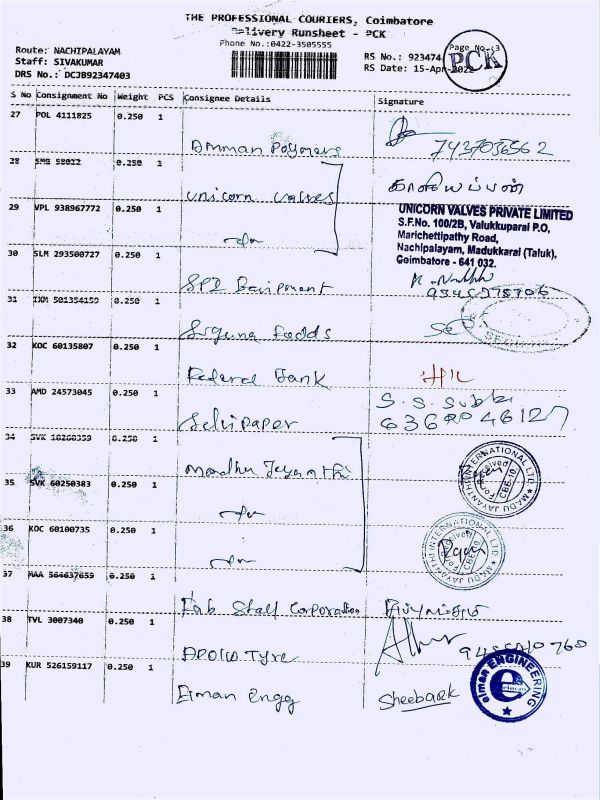 THE PROFESSIONAL COURIERS, Coimbatore
Delivery Runsheet - PCK
Phone No.:0422-3505555
Route: NACHIPALAYAM
Staff: SIVAKUMAR
DRS No.: DCJB92347403
RS No.: 923474
RS Date: 15-Apr-2022
Page No.:3
PCK
S No Consignment No Weight PCS Consignee Details Signature
27 POL 4111825 0.250 1
Amman Polymers
28 SMB 58012 0.250 1
unicorn valves
காளியப்பன்
29 VPL 938967772 0.250 1
UNICORN VALVES PRIVATE LIMITED
S.F.No. 100/2B, Valukkuparai P.O,
Marichettipathy Road,
Nachipalayam, Madukkarai (Taluk),
Coimbatore - 641 032.
do
30 SLM 293500727 0.250 1
31 IXM 501354159 0.250 1
Suguna foods
32 KOC 60135807 0.250 1
Federal Bank
33 AMD 24573045 0.250 1
Selvi paper
S. S. Subhi
34 SVK 10260359 0.250 1
Madhu Jayanthi
MADU JAYANTHI INTERNATIONAL LTD.
Received
CBE-10
35 SVK 60250383 0.250 1
do
36 KOC 60100735 0.250 1
do
MADU JAYANTHI INTERNATIONAL LTD.
Received
CBE-10
37 MAA 564637659 0.250 1
Fab Stall Corporation
38 TVL 3007340 0.250 1
Apollo Tyre
39 KUR 526159117 0.250 1
Elman Engg
Sheebark
elman ENGINEERING
elman